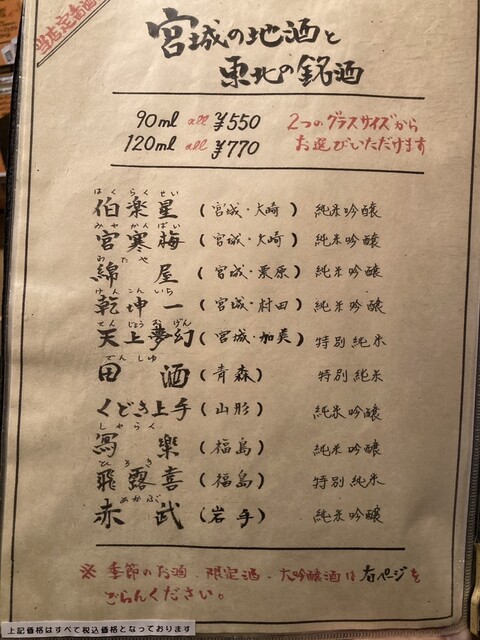 当店定番酒
宮城の地酒と
東北の銘酒
90ml all ¥550
120ml all ¥770
2つのグラスサイズから
お選びいただけます
はくらくせい
伯楽星 (宮城・大崎) 純米吟醸
みやかんばい
宮寒梅 (宮城・大崎) 純米吟醸
わたや
綿屋 (宮城・栗原) 純米吟醸
けんこんいち
乾坤一 (宮城・村田) 純米吟醸
てんじょうむげん
天上夢幻 (宮城・加美) 特別純米
でんしゅ
田酒 (青森) 特別純米
くどき上手 (山形) 純米吟醸
しゃらく
寫樂 (福島) 純米吟醸
ひろき
飛露喜 (福島) 特別純米
あかぶ
赤武 (岩手) 純米吟醸
※ 季節のお酒、限定酒、大吟醸酒は右ページを
ごらんください。
上記価格はすべて税込価格となっております